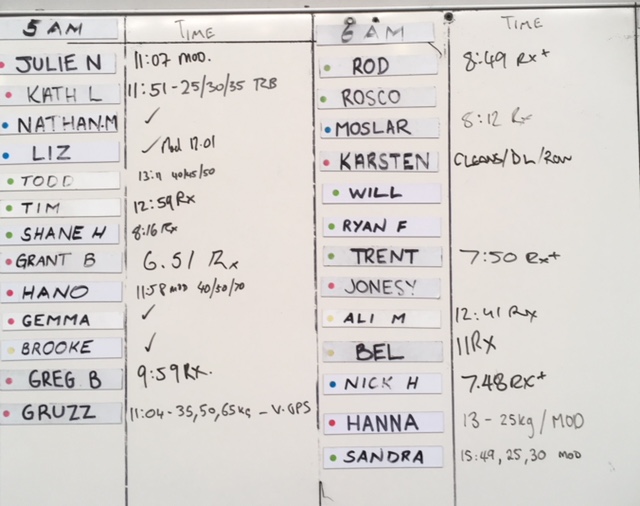 5 AM TIME
JULIE N 11:07 MOD.
KATH L 11:51 - 25/30/35 RB
NATHAN.M ✓
LIZ ✓ Mod 12.01
TODD 13:11 40/45/50
TIM 12:59 Rx
SHANE H 8:16 Rx
GRANT B 6.51 Rx
HANO 11:58 MOD 40/50/70
GEMMA ✓
BROOKE ✓
GREG B 9:59 RX.
GRUZZ 11:04 - 35,50,65kg - V. GPS
6 AM TIME
ROD 8:49 Rx+
ROSCO
MOSLAR 8:12 Rx
KARSTEN CLEANS/DL/ROW
WILL
RYAN F
TRENT 7:50 Rx+
JONESY
ALI M 12:41 Rx
BEL 11 Rx
NICK H 7.48 RX+
HANNA 13 - 25kg / MOD
SANDRA 15:49, 25, 30 MOD